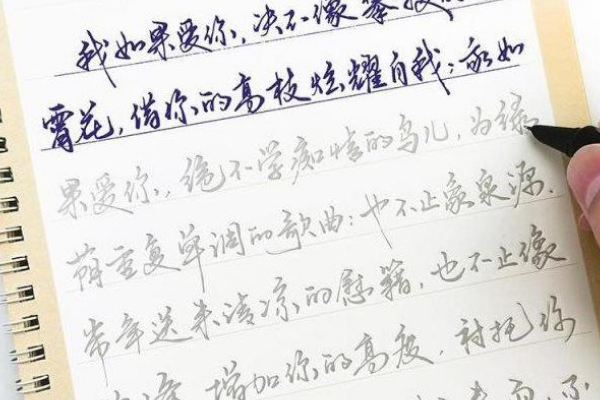 我如果爱你,决不像攀
霄花,借你的高枝炫耀自我:我如
果爱你,绝不学痴情的鸟儿,为绿
荫重复单调的歌曲:也不止象泉源,
常年送来清凉的慰籍,也不止像
增加你的高度,衬托你